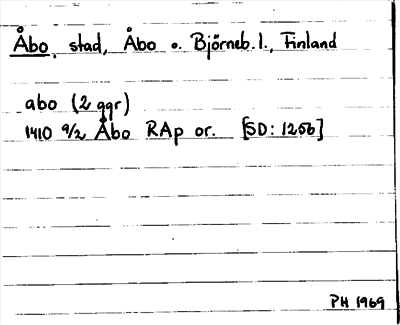 Åbo, stad, Åbo o. Björneb. l., Finland
abo (2 ggr)
1410 9/2 Åbo RAp or. [SD: 1256]
PH 1969